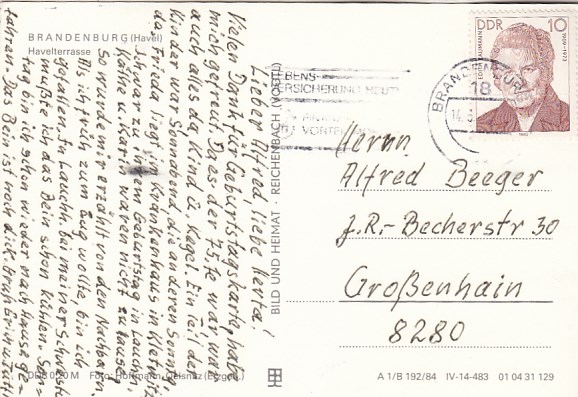 BRANDENBURG (Havel)
Havelterrasse
DDR 10
EDWIN HOERNLE
BRANDENBURG
18
14.
VERSICHERUNG HEUT
VORTEI
Herrn
Alfred Beeger
J.R.-Becherstr 30
Großenhain
8280
BILD UND HEIMAT · REICHENBACH (VOGTL)
A 1/B 192/84 IV-14-483 01 04 31 129
Lieber Alfred, liebe Herta!
Vielen Dank für Geburtstagskarte, habe
mich gefreut. Da es der 75.te war war
auch alles da Kind u. Kegel. Ein Teil der
Kinder war Sonnabend die anderen Sonntag
da. Frieda liegt im Krankenhaus in
zu ihrem Geburtstag in Lauchh.
Käthe u. Karin waren nicht zu Hause,
so wurde mir erzählt von den Nachbarn.
Als ich früh zum Zug wollte, bin ich
gefallen. In Lauchh. bei meiner Schwester
mußte ich das Bein schon kühlen. Sonn-
tag bin ich schon wieder nach Hause ge-
fahren. Das Bein ist noch dick. Gruß